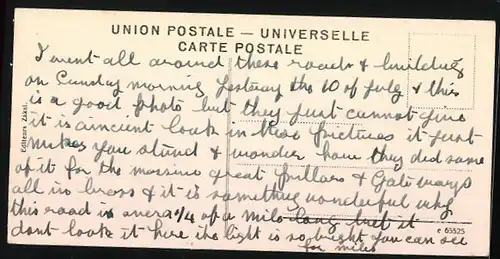 UNION POSTALE — UNIVERSELLE
CARTE POSTALE
I went all around these roads & building
on Sunday morning yesterday the 10 of July & this
is a good photo but they just cannot give
it is aincient look in these pictures it just
makes you stand & wonder how they did some
of it for the massive great pillars & Gate ways
all in brass & it is something wonderful why
this road is over a ¼ of a mile long but it
dont look it here the light is so bright you can see
for miles
Editeurs Zákat.
e 65525